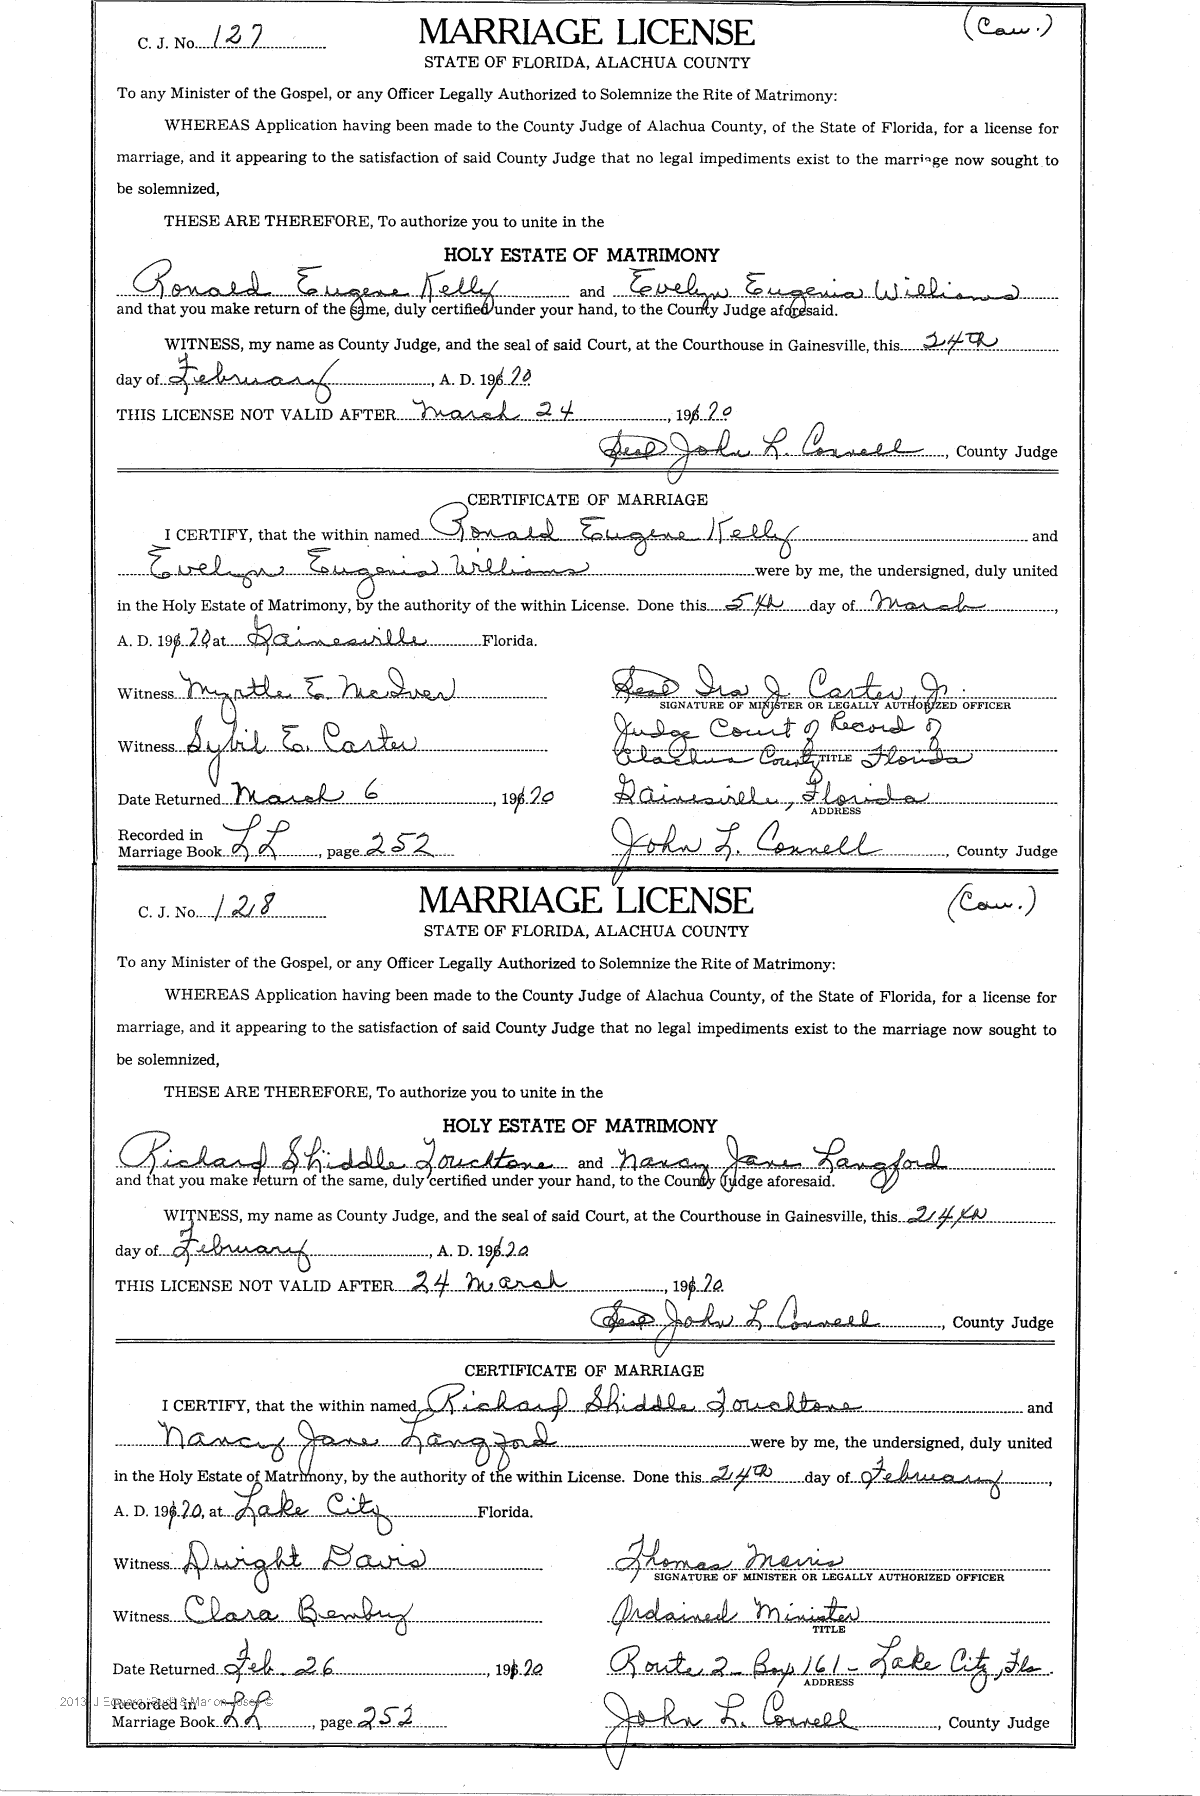 C. J. No. 127
MARRIAGE LICENSE
(Cau.)
STATE OF FLORIDA, ALACHUA COUNTY
To any Minister of the Gospel, or any Officer Legally Authorized to Solemnize the Rite of Matrimony:
WHEREAS Application having been made to the County Judge of Alachua County, of the State of Florida, for a license for
marriage, and it appearing to the satisfaction of said County Judge that no legal impediments exist to the marriage now sought to
be solemnized,
THESE ARE THEREFORE, To authorize you to unite in the
HOLY ESTATE OF MATRIMONY
Ronald Eugene Kelly and Evelyn Eugenia Williams
and that you make return of the same, duly certified under your hand, to the County Judge aforesaid.
WITNESS, my name as County Judge, and the seal of said Court, at the Courthouse in Gainesville, this 24th
day of February, A. D. 1970
THIS LICENSE NOT VALID AFTER March 24, 1970
Seal John L. Connell, County Judge
CERTIFICATE OF MARRIAGE
I CERTIFY, that the within named Ronald Eugene Kelly and
Evelyn Eugenia Williams were by me, the undersigned, duly united
in the Holy Estate of Matrimony, by the authority of the within License. Done this 5th day of March,
A. D. 1970 at Gainesville Florida.
Witness Myrtle E. McIver
Seal Ira J. Carter, Jr.
SIGNATURE OF MINISTER OR LEGALLY AUTHORIZED OFFICER
Judge Court of Record of
Witness Sybil E. Carter
Alachua County Florida
TITLE
Date Returned March 6, 1970
Gainesville, Florida
ADDRESS
Recorded in
Marriage Book LL, page 252
John L. Connell, County Judge
C. J. No. 128
MARRIAGE LICENSE
(Cau.)
STATE OF FLORIDA, ALACHUA COUNTY
To any Minister of the Gospel, or any Officer Legally Authorized to Solemnize the Rite of Matrimony:
WHEREAS Application having been made to the County Judge of Alachua County, of the State of Florida, for a license for
marriage, and it appearing to the satisfaction of said County Judge that no legal impediments exist to the marriage now sought to
be solemnized,
THESE ARE THEREFORE, To authorize you to unite in the
HOLY ESTATE OF MATRIMONY
Richard Shiddle Touchtone and Nancy Jane Langford
and that you make return of the same, duly certified under your hand, to the County Judge aforesaid.
WITNESS, my name as County Judge, and the seal of said Court, at the Courthouse in Gainesville, this 24th
day of February, A. D. 1970
THIS LICENSE NOT VALID AFTER 24 March, 1970.
Seal John L. Connell, County Judge
CERTIFICATE OF MARRIAGE
I CERTIFY, that the within named Richard Shiddle Touchtone and
Nancy Jane Langford were by me, the undersigned, duly united
in the Holy Estate of Matrimony, by the authority of the within License. Done this 24th day of February,
A. D. 1970, at Lake City Florida.
Witness Dwight Davis
Thomas Morris
SIGNATURE OF MINISTER OR LEGALLY AUTHORIZED OFFICER
Witness Clara Bembry
Ordained Minister
TITLE
Date Returned Feb. 26, 1970
Route 2 - Box 161 - Lake City, Fla.
ADDRESS
2013
Recorded in
Marriage Book LL, page 252
John L. Connell, County Judge